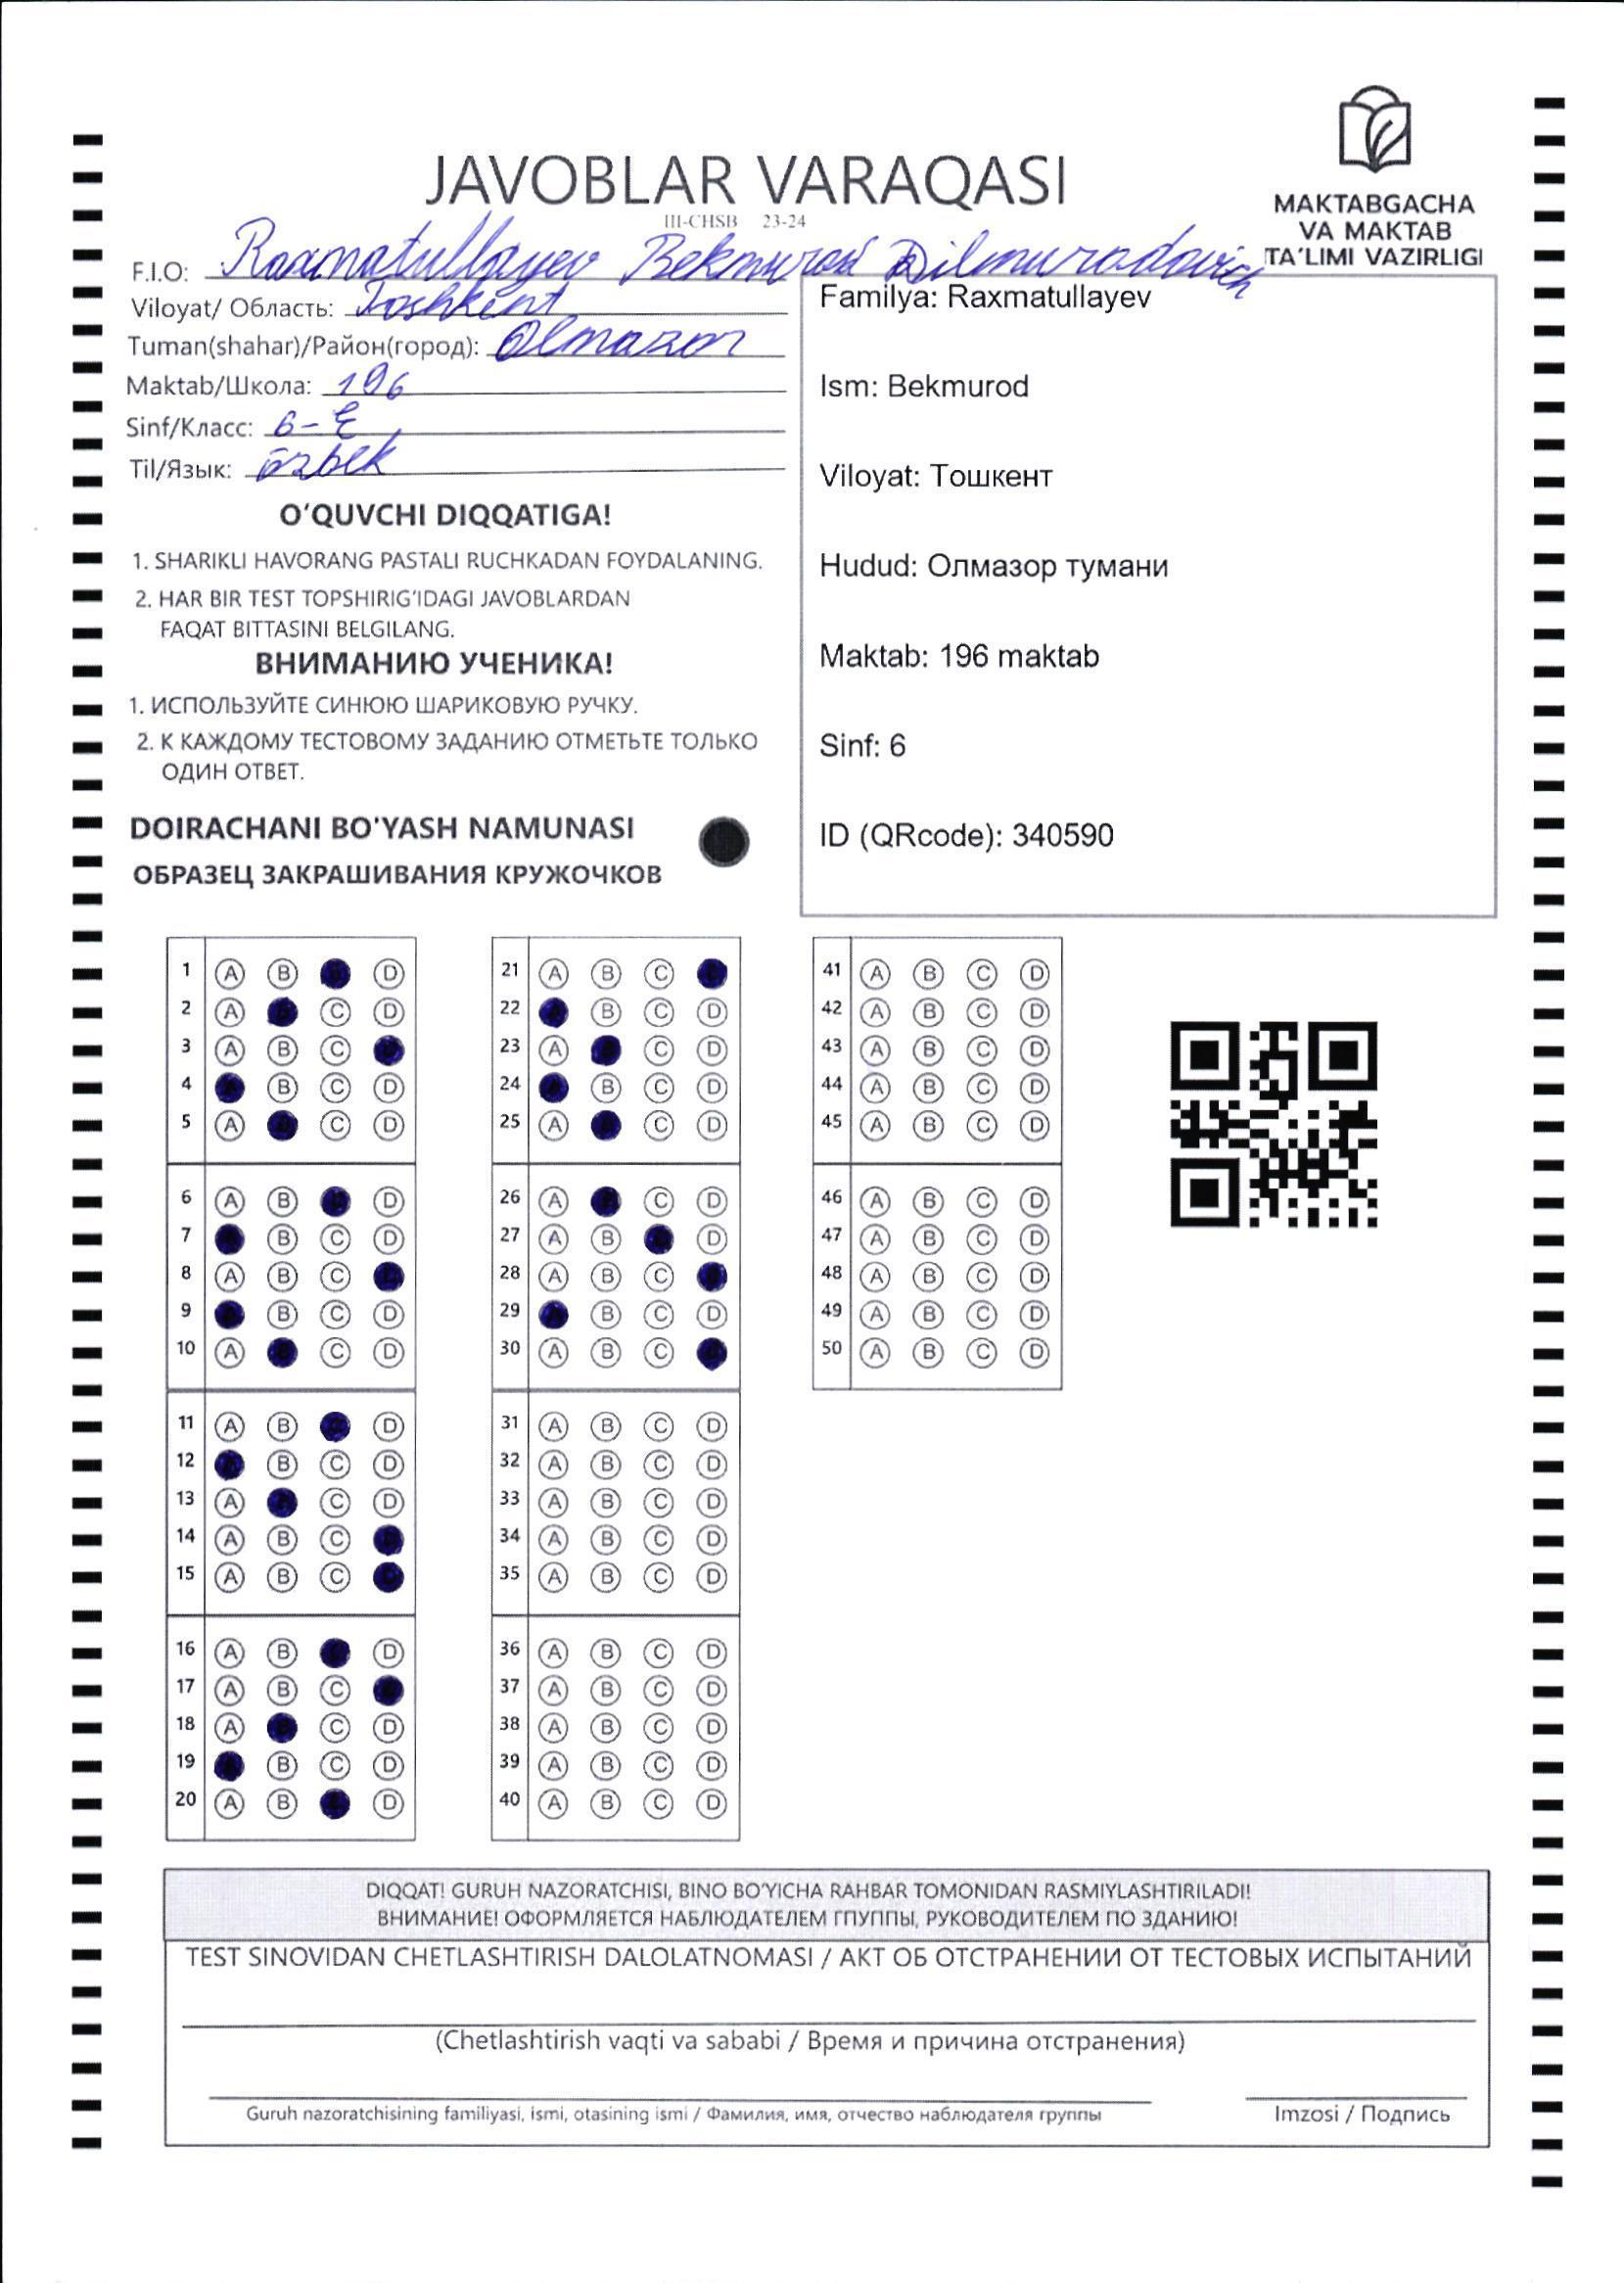 JAVOBLAR VARAQASI
III-CHSB 23-24
MAKTABGACHA
VA MAKTAB
TA'LIMI VAZIRLIGI
F.I.O: Raxmatullayev Bekmurod Dilmurodovich
Viloyat/ Область: Toshkent
Tuman(shahar)/Район(город): Olmazor
Maktab/Школа: 196
Sinf/Класс: 6-E
Til/Язык: o'zbek
Familya: Raxmatullayev
Ism: Bekmurod
Viloyat: Тошкент
Hudud: Олмазор тумани
Maktab: 196 maktab
Sinf: 6
ID (QRcode): 340590
O'QUVCHI DIQQATIGA!
1. SHARIKLI HAVORANG PASTALI RUCHKADAN FOYDALANING.
2. HAR BIR TEST TOPSHIRIG'IDAGI JAVOBLARDAN
FAQAT BITTASINI BELGILANG.
ВНИМАНИЮ УЧЕНИКА!
1. ИСПОЛЬЗУЙТЕ СИНЮЮ ШАРИКОВУЮ РУЧКУ.
2. К КАЖДОМУ ТЕСТОВОМУ ЗАДАНИЮ ОТМЕТЬТЕ ТОЛЬКО
ОДИН ОТВЕТ.
DOIRACHANI BO'YASH NAMUNASI
ОБРАЗЕЦ ЗАКРАШИВАНИЯ КРУЖОЧКОВ
1 A B D
2 A C D
3 A B C
4 B C D
5 A C D
6 A B D
7 B C D
8 A B C
9 B C D
10 A C D
11 A B D
12 B C D
13 A C D
14 A B C
15 A B C
16 A B D
17 A B C
18 A C D
19 B C D
20 A B D
21 A B C
22 B C D
23 A C D
24 B C D
25 A C D
26 A C D
27 A B D
28 A B C
29 B C D
30 A B C
31 A B C D
32 A B C D
33 A B C D
34 A B C D
35 A B C D
36 A B C D
37 A B C D
38 A B C D
39 A B C D
40 A B C D
41 A B C D
42 A B C D
43 A B C D
44 A B C D
45 A B C D
46 A B C D
47 A B C D
48 A B C D
49 A B C D
50 A B C D
DIQQAT! GURUH NAZORATCHISI, BINO BO'YICHA RAHBAR TOMONIDAN RASMIYLASHTIRILADI!
ВНИМАНИЕ! ОФОРМЛЯЕТСЯ НАБЛЮДАТЕЛЕМ ГПУППЫ, РУКОВОДИТЕЛЕМ ПО ЗДАНИЮ!
TEST SINOVIDAN CHETLASHTIRISH DALOLATNOMASI / АКТ ОБ ОТСТРАНЕНИИ ОТ ТЕСТОВЫХ ИСПЫТАНИЙ
(Chetlashtirish vaqti va sababi / Время и причина отстранения)
Guruh nazoratchisining familiyasi, ismi, otasining ismi / Фамилия, имя, отчество наблюдателя группы
Imzosi / Подпись